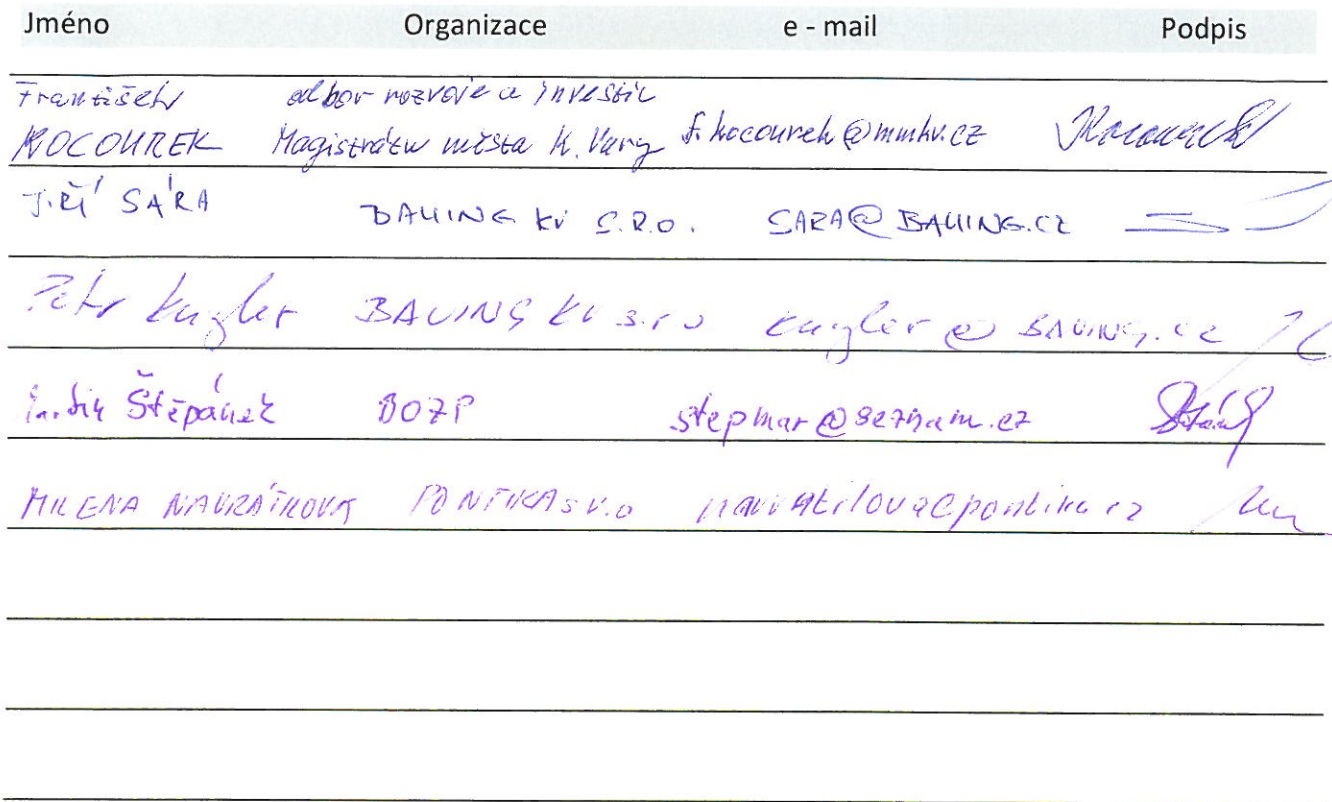 Jméno Organizace e - mail Podpis
František odbor rozvoje a investic
KOCOUREK Magistrátu města K. Vary f.kocourek@mmkv.cz
Jiří SÁRA BAUING KV S.R.O. SARA@BAUING.CZ
Petr Kugler BAUING KV s.r.o kugler@BAUING.cz
Štěpánek BOZP stepmar@seznam.cz
MILENA NAVRÁTILOVÁ PONTIKA s.r.o navratilova@pontika.cz